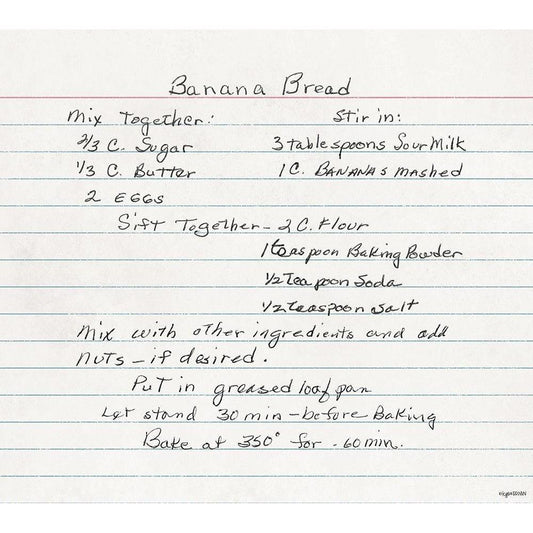 Banana Bread
Mix Together:
2/3 C. Sugar
1/3 C. Butter
2 EGGS
Stir in:
3 tablespoons Sour Milk
1 C. BANANAS mashed
Sift Together - 2 C. Flour
1 teaspoon Baking Powder
1/2 teapoon Soda
1/2 teaspoon salt
Mix with other ingredients and add
nuts - if desired.
Put in greased loaf pan
Let stand 30 min - before Baking
Bake at 350° for .60 min.